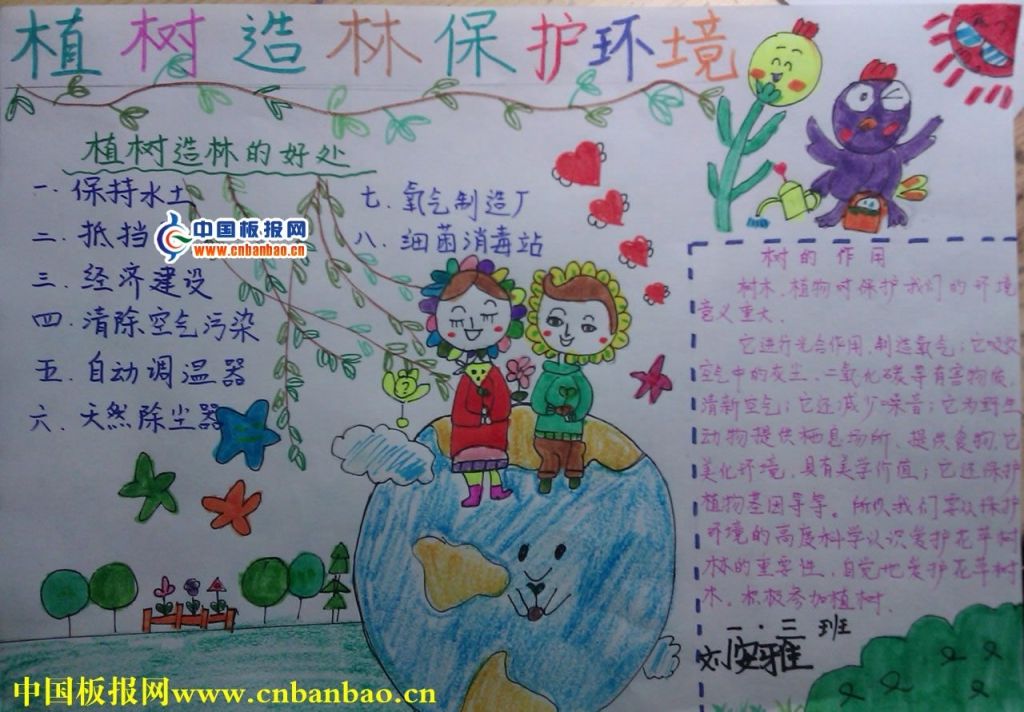 植树造林保护环境
植树造林的好处
一.保持水土
二.抵挡
三.经济建设
四.清除空气污染
五.自动调温器
六.天然除尘器
七.氧气制造厂
八.细菌消毒站
中国板报网
www.cnbanbao.cn
树的作用
树木、植物对保护我们的环境
意义重大。
它进行光合作用,制造氧气;它吸收
空气中的灰尘、二氧化碳等有害物质,
清新空气;它还减少噪音;它为野生
动物提供栖息场所、提供食物,它
美化环境,具有美学价值;它还保护
植物基因等等。所以我们要从保护
环境的高度科学认识爱护花草树
林的重要性,自觉地爱护花草树
木,积极参加植树.
一.二班
刘安雅
中国板报网www.cnbanbao.cn